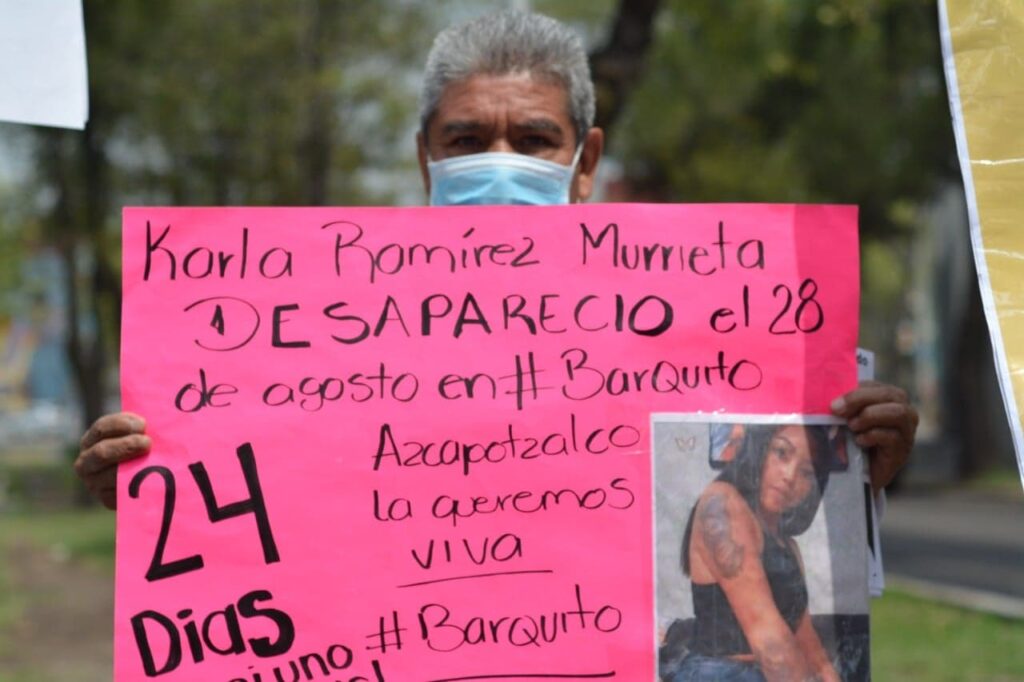 Karla Ramírez Murrieta
DESAPARECIO el 28
de agosto en #BarQuito
Azcapotzalco
la queremos
viva
24
Días
#BarQuito
ni uno